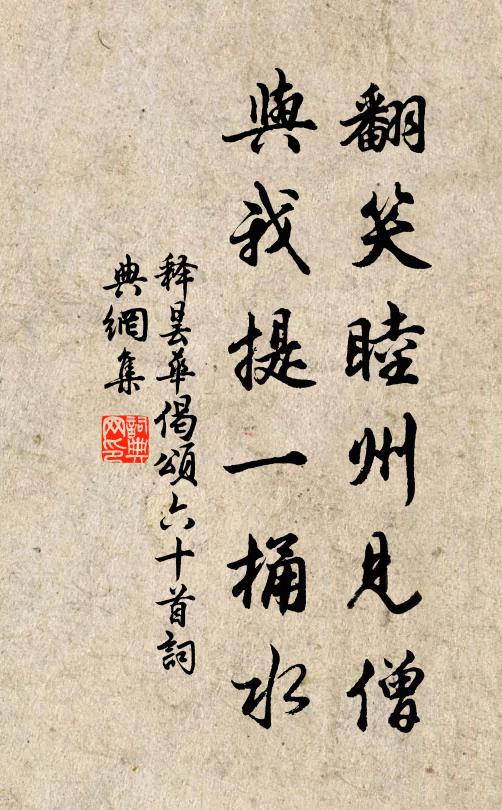 翻笑睦州見僧
與我提一桶水
释曇華偈頌六十首詞
典網集
詞典
网印